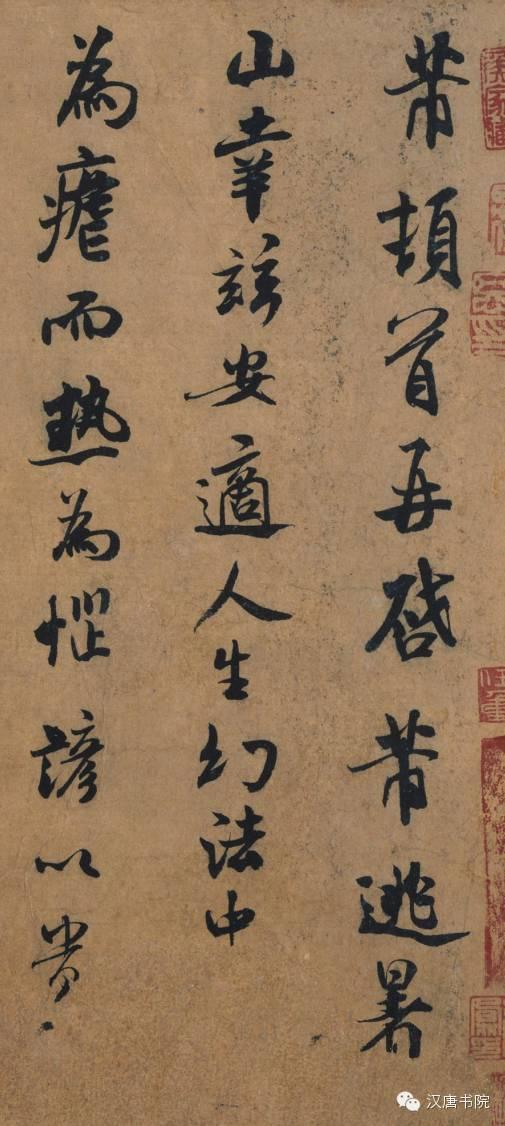 芾頓首再啓芾逃暑
山幸兹安適人生幻法中
為瘧而热為惱諺以貴
汉唐书院